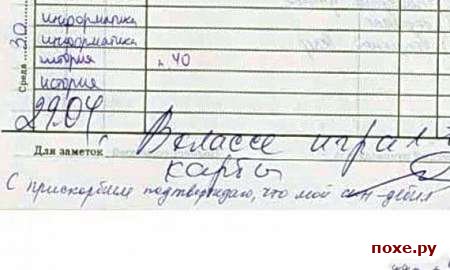 Среда 30
информатика
информатика
история п. 40
история
29.04 В классе играл в
Для заметок
карты
С прискорбием подтверждаю, что мой сын - дебил
похе.ру